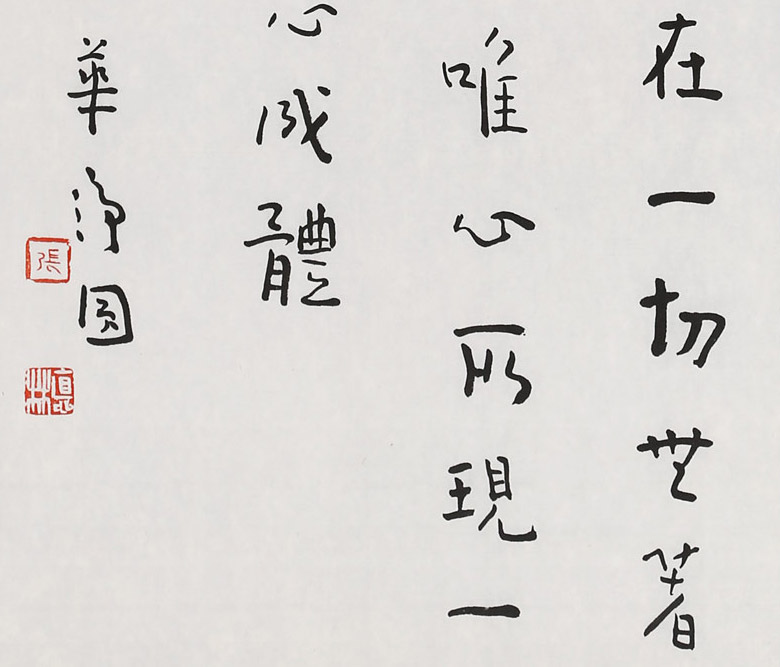 在一切無著
唯心所現一
心成體
華淨圓
張